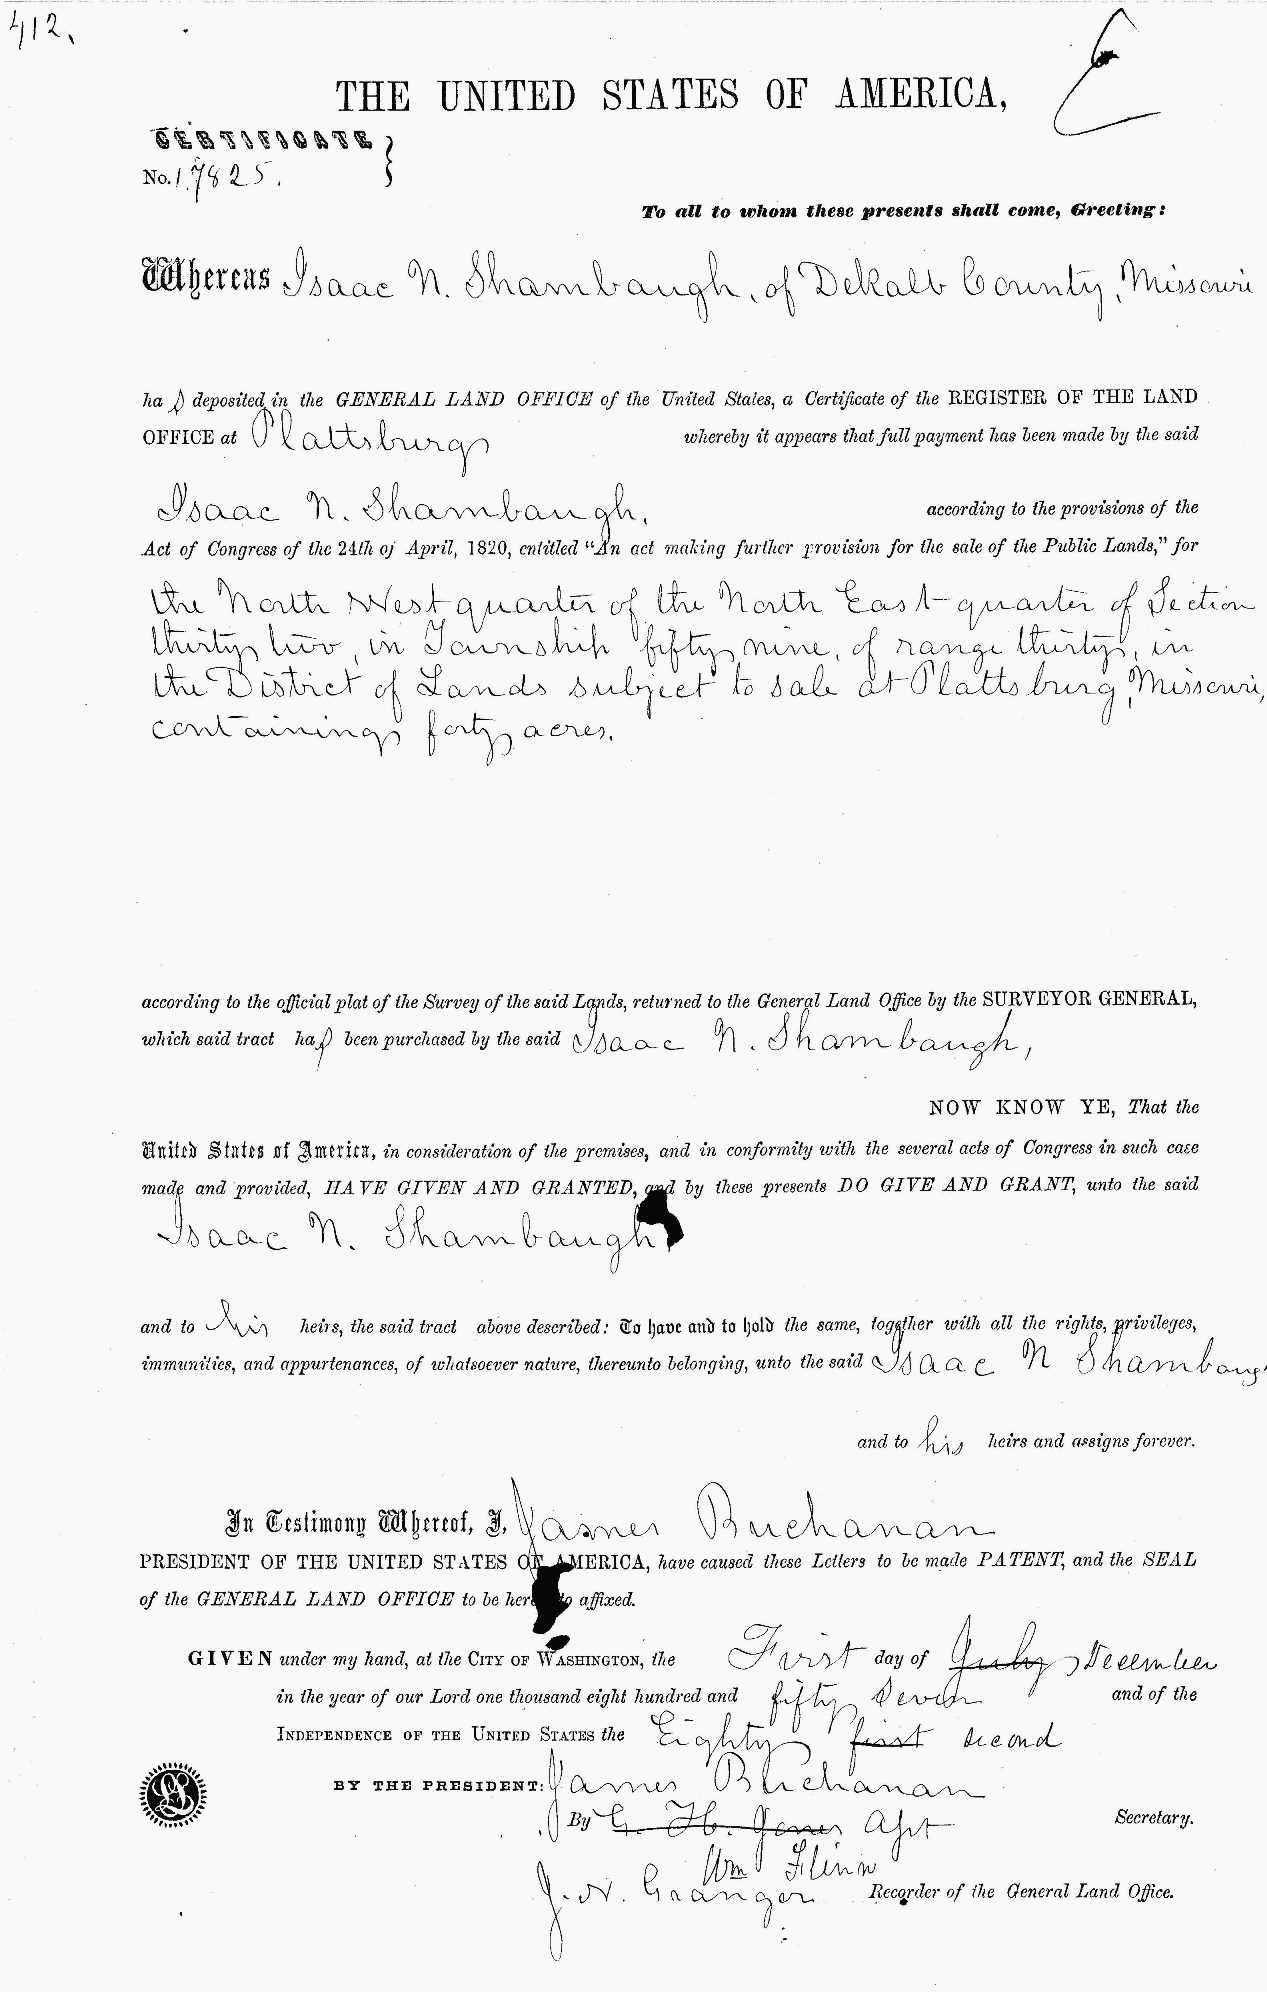 412.
THE UNITED STATES OF AMERICA,
CERTIFICATE
No. 17825.
To all to whom these presents shall come, Greeting:
Whereas Isaac N. Shambaugh, of DeKalb County, Missouri
has deposited in the GENERAL LAND OFFICE of the United States, a Certificate of the REGISTER OF THE LAND
OFFICE at Plattsburg whereby it appears that full payment has been made by the said
Isaac N. Shambaugh, according to the provisions of the
Act of Congress of the 24th of April, 1820, entitled "An act making further provision for the sale of the Public Lands," for
the North West quarter of the North East quarter of Section
thirty two, in Township fifty nine, of range thirty, in
the District of Lands subject to sale at Plattsburg, Missouri,
containing forty acres.
according to the official plat of the Survey of the said Lands, returned to the General Land Office by the SURVEYOR GENERAL,
which said tract has been purchased by the said Isaac N. Shambaugh,
NOW KNOW YE, That the
United States of America, in consideration of the premises, and in conformity with the several acts of Congress in such case
made and provided, HAVE GIVEN AND GRANTED, and by these presents DO GIVE AND GRANT, unto the said
Isaac N. Shambaugh
and to his heirs, the said tract above described: To have and to hold the same, together with all the rights, privileges,
immunities, and appurtenances, of whatsoever nature, thereunto belonging, unto the said Isaac N Shambaugh
and to his heirs and assigns forever.
In Testimony Whereof, I, James Buchanan
PRESIDENT OF THE UNITED STATES OF AMERICA, have caused these Letters to be made PATENT, and the SEAL
of the GENERAL LAND OFFICE to be hereunto affixed.
GIVEN under my hand, at the CITY OF WASHINGTON, the First day of July December
in the year of our Lord one thousand eight hundred and fifty seven and of the
INDEPENDENCE OF THE UNITED STATES the Eighty first second
BY THE PRESIDENT: James Buchanan
By G. H. Jones Asst Secretary.
Wm Flinn
J. N. Granger Recorder of the General Land Office.